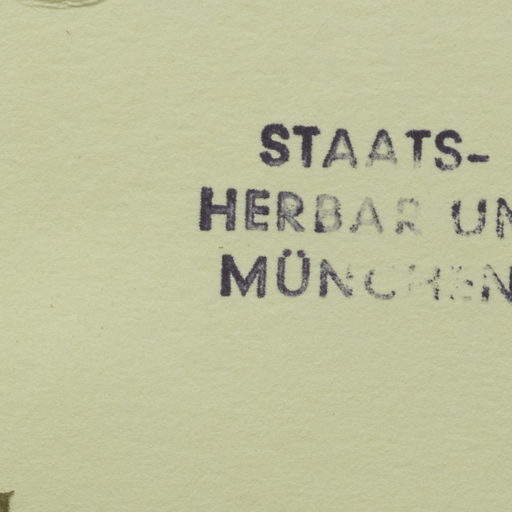 STAATS-
HERBAR UN
MÜNCHEN